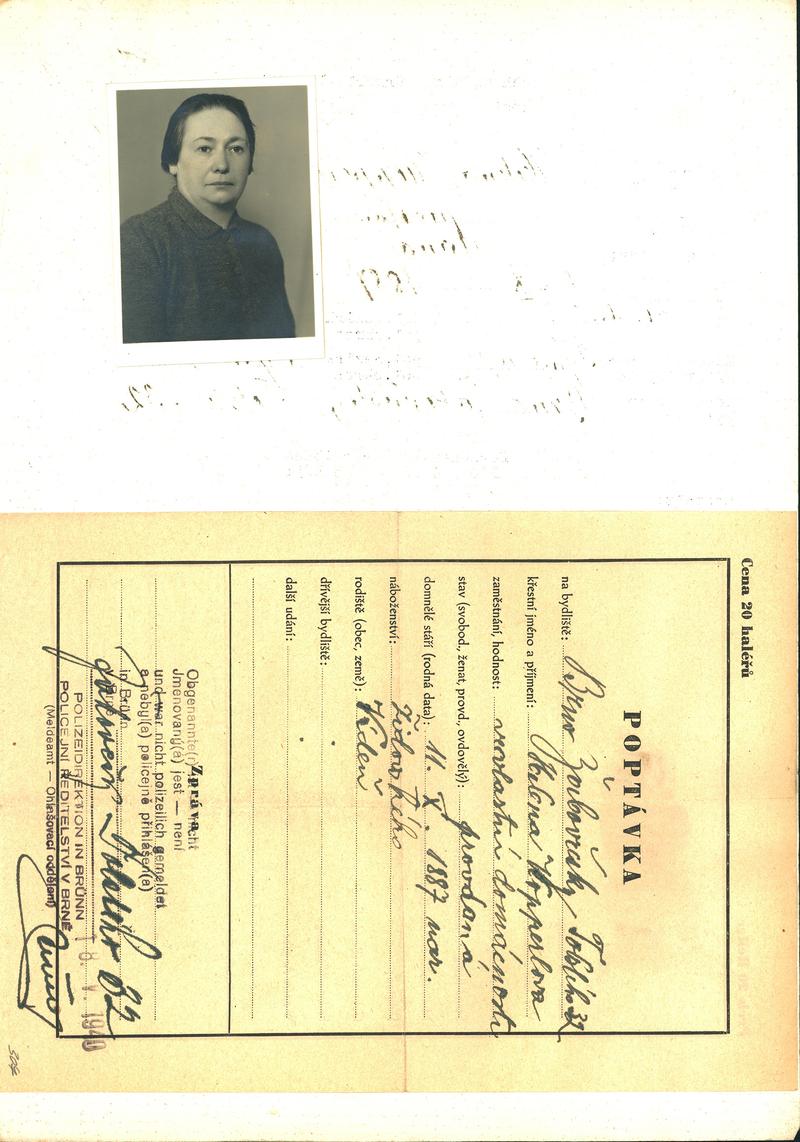 Cena 20 haléřů
POPTÁVKA
na bydliště: Brno Žabovřesky, Tolstého 32
křestní jméno a příjmení: Helena Kopperlova
zaměstnání, hodnost: vevlastní domácnosti
stav (svobod., ženat, provd., ovdovělý): provdaná
domnělé stáří (rodná data): 11. X. 1887 nar.
náboženství: židovského
rodiště (obec, země): Vídeň
dřívější bydliště:
další udání:
Zpráva
Obgenannte(r) nicht
Jmenovaný(á) jest — není
und war nicht polizeilich gemeldet
a nebyl(a) policejně přihlášen(a)
in Brünn
32
POLIZEIDIREKTION IN BRÜNN
POLICEJNÍ ŘEDITELSTVÍ V BRNĚ
V. 1940
(Meldeamt — Ohlašovací oddělení)